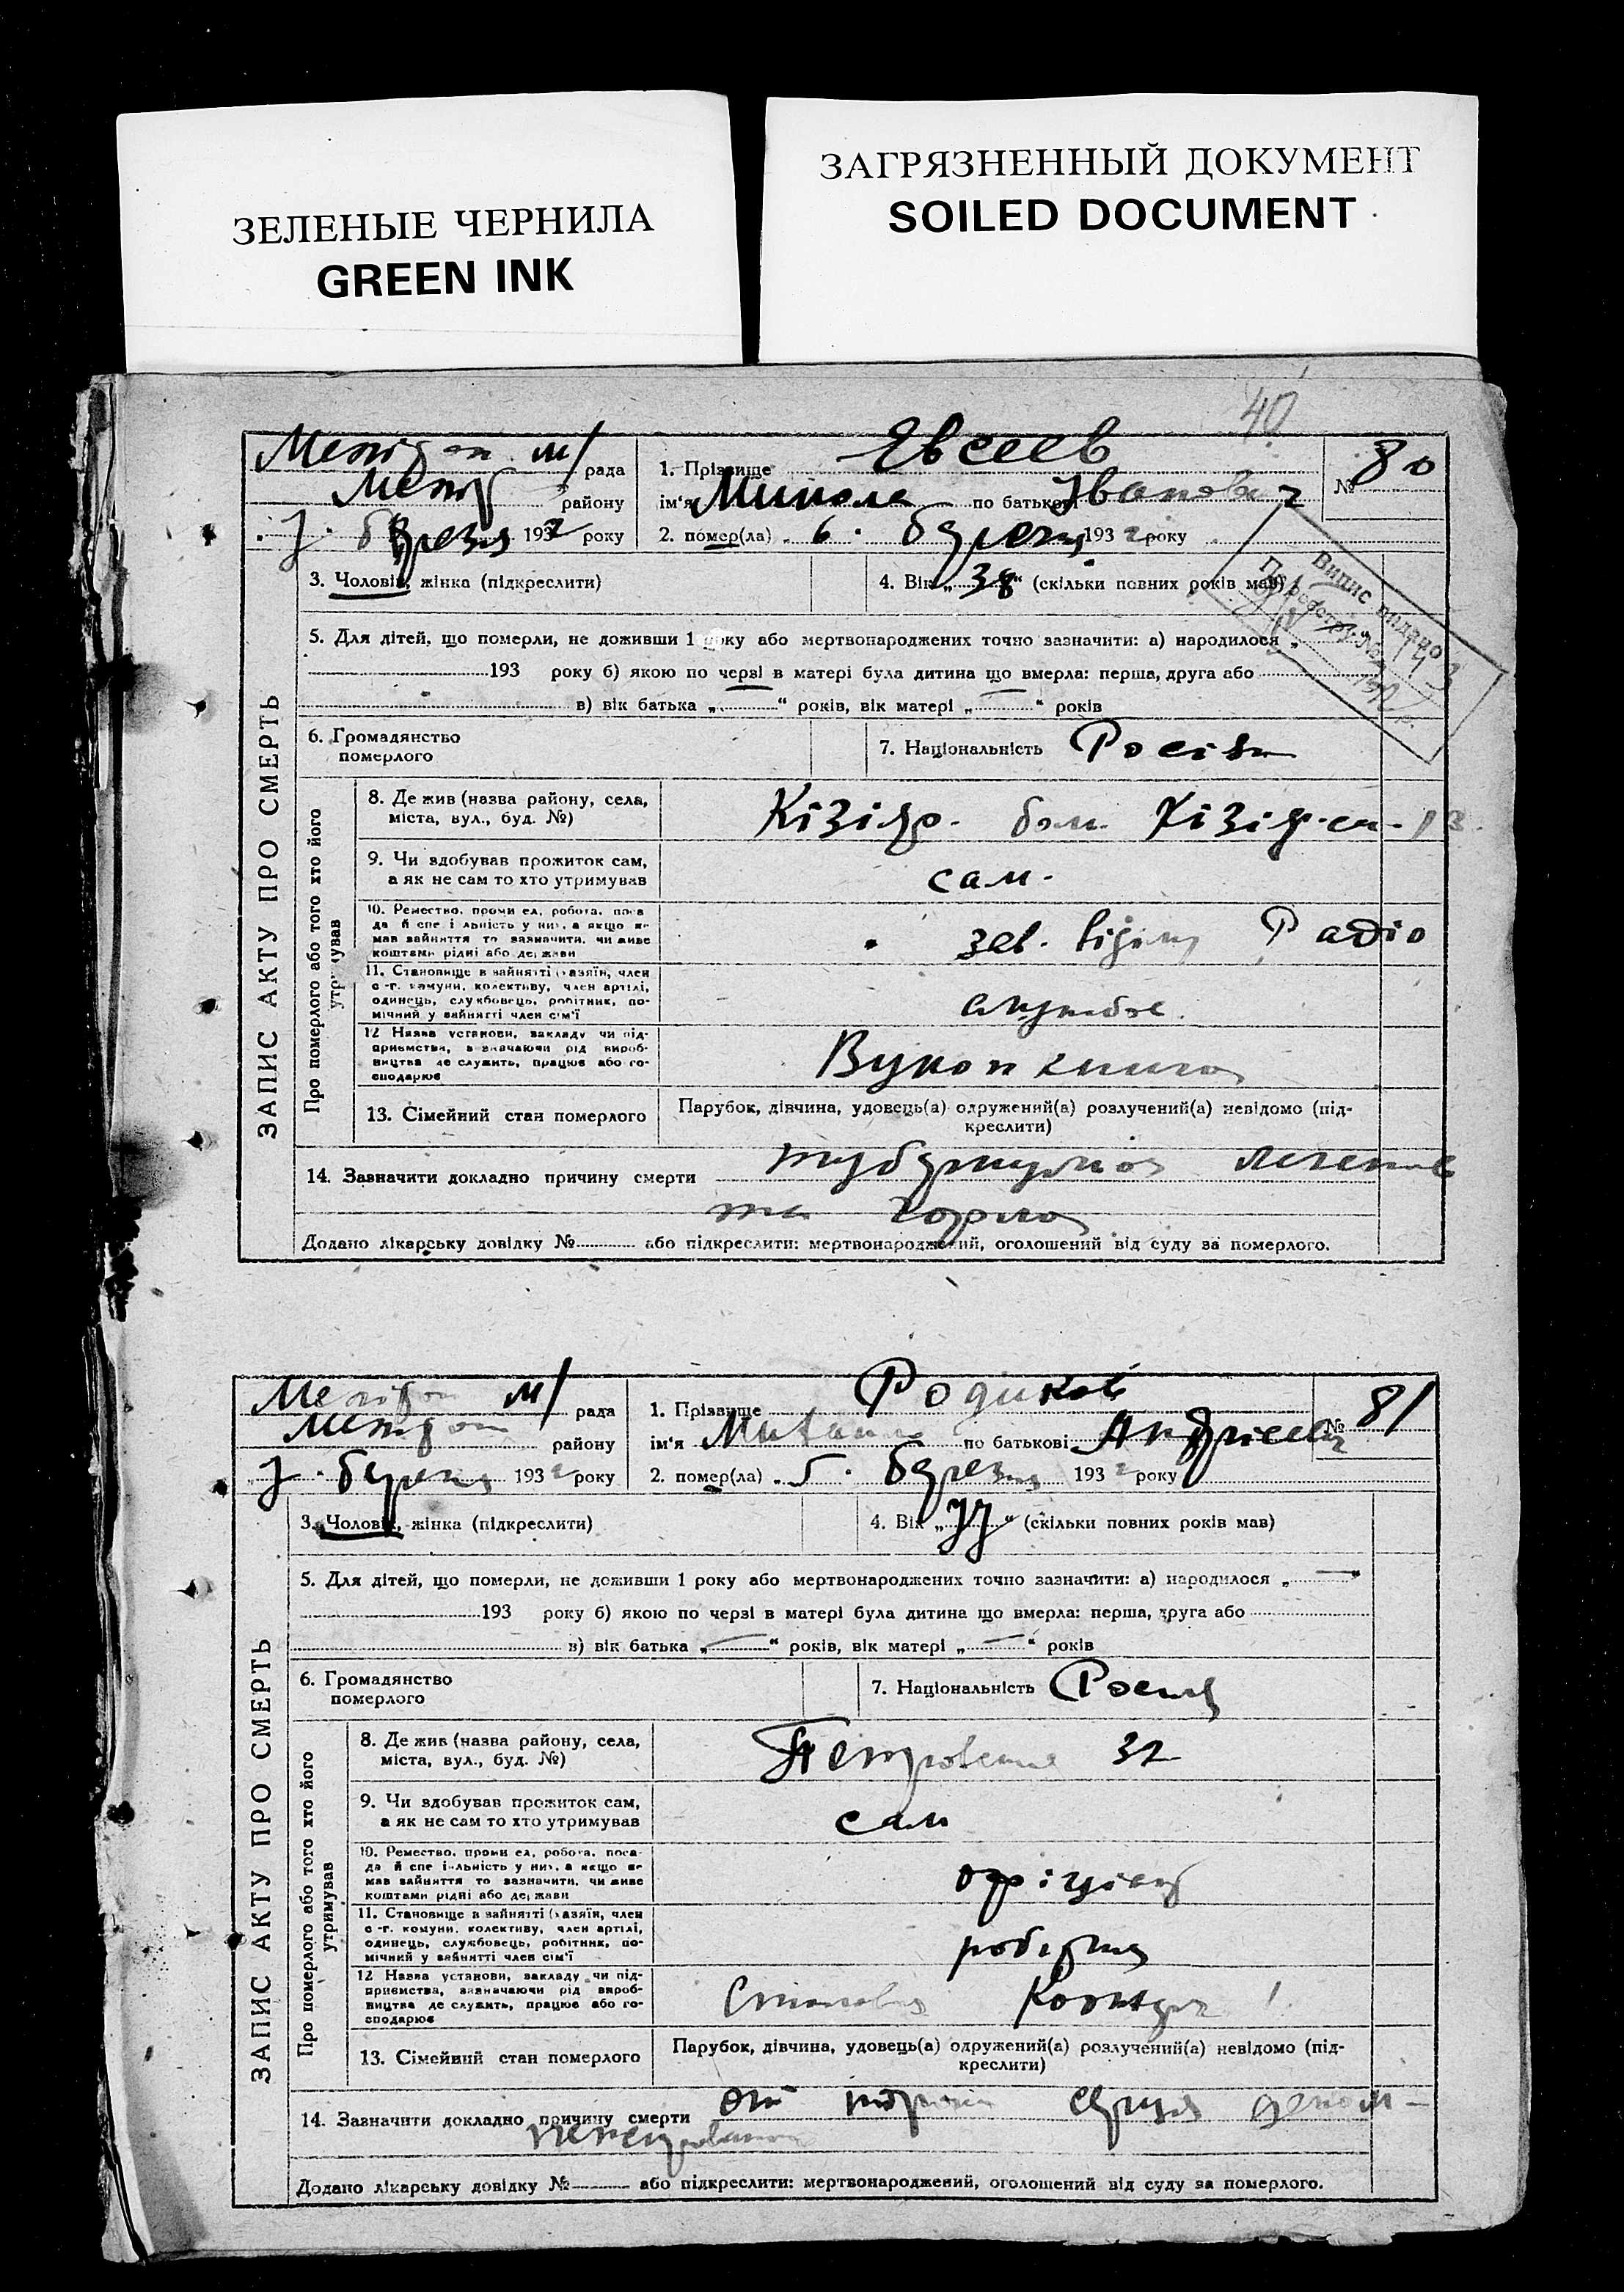 ЗЕЛЕНЫЕ ЧЕРНИЛА
GREEN INK
ЗАГРЯЗНЕННЫЙ ДОКУМЕНТ
SOILED DOCUMENT
40
ЗАПИС АКТУ ПРО СМЕРТЬ
м/ рада
району
193 2 року
1. Прізвище Евсеев
ім'я Микола по батькові Іванович
№ 80
2. помер(ла) 6. березня 193 2 року
Випис видано
3. Чоловік, жінка (підкреслити)
4. Вік „38“ (скільки повних років мав)
5. Для дітей, що померли, не доживши 1 року або мертвонароджених точно зазначити: а) народилося „
193 року б) якою по черзі в матері була дитина що вмерла: перша, друга або
в) вік батька „ “ років, вік матері „ “ років
6. Громадянство
померлого
7. Національність Росіян
Про померлого або того хто його
утримував
8. Де жив (назва району, села,
міста, вул., буд. №)
9. Чи здобував прожиток сам,
а як не сам то хто утримував
сам.
10. Ремество, промисел, робота, поса-
да й спеціальність у них, а якщо не
мав зайняття то зазначити, чи живе
коштами рідні або держави
зав. Радіо
11. Становище в зайнятті (хазяїн, член
с.-г. комуни, колективу, член артілі,
одинець, службовець, робітник, по-
мічний у зайнятті член сім'ї
службов.
12 Назва установи, закладу чи під-
приємства, зазначаючи рід вироб-
ництва де служить, працює або го-
сподарює
Вукопкнига
13. Сімейний стан померлого
Парубок, дівчина, удовець(а) одружений(а) розлучений(а) невідомо (під-
креслити)
14. Зазначити докладно причину смерти туберкульоз легенів
та горла
Додано лікарську довідку № або підкреслити: мертвонароджений, оголошений від суду за померлого.
ЗАПИС АКТУ ПРО СМЕРТЬ
м/ рада
району
березня 193 2 року
1. Прізвище Родиков
ім'я Михайло по батькові Андрієвич
№ 81
2. помер(ла) 5. березня 193 2 року
3. Чоловік, жінка (підкреслити)
4. Вік „77“ (скільки повних років мав)
5. Для дітей, що померли, не доживши 1 року або мертвонароджених точно зазначити: а) народилося „—“
193 року б) якою по черзі в матері була дитина що вмерла: перша, друга або
в) вік батька „—“ років, вік матері „—“ років
6. Громадянство
померлого
7. Національність
Про померлого або того хто його
утримував
8. Де жив (назва району, села,
міста, вул., буд. №)
Петровська 32
9. Чи здобував прожиток сам,
а як не сам то хто утримував
сам
10. Ремество, промисел, робота, поса-
да й спеціальність у них, а якщо не
мав зайняття то зазначити, чи живе
коштами рідні або держави
офіціант
11. Становище в зайнятті (хазяїн, член
с.-г. комуни, колективу, член артілі,
одинець, службовець, робітник, по-
мічний у зайнятті член сім'ї
робітник
12 Назва установи, закладу чи під-
приємства, зазначаючи рід вироб-
ництва де служить, працює або го-
сподарює
13. Сімейний стан померлого
Парубок, дівчина, удовець(а) одружений(а) розлучений(а) невідомо (під-
креслити)
14. Зазначити докладно причину смерти від серця
Додано лікарську довідку № або підкреслити: мертвонароджений, оголошений від суду за померлого.